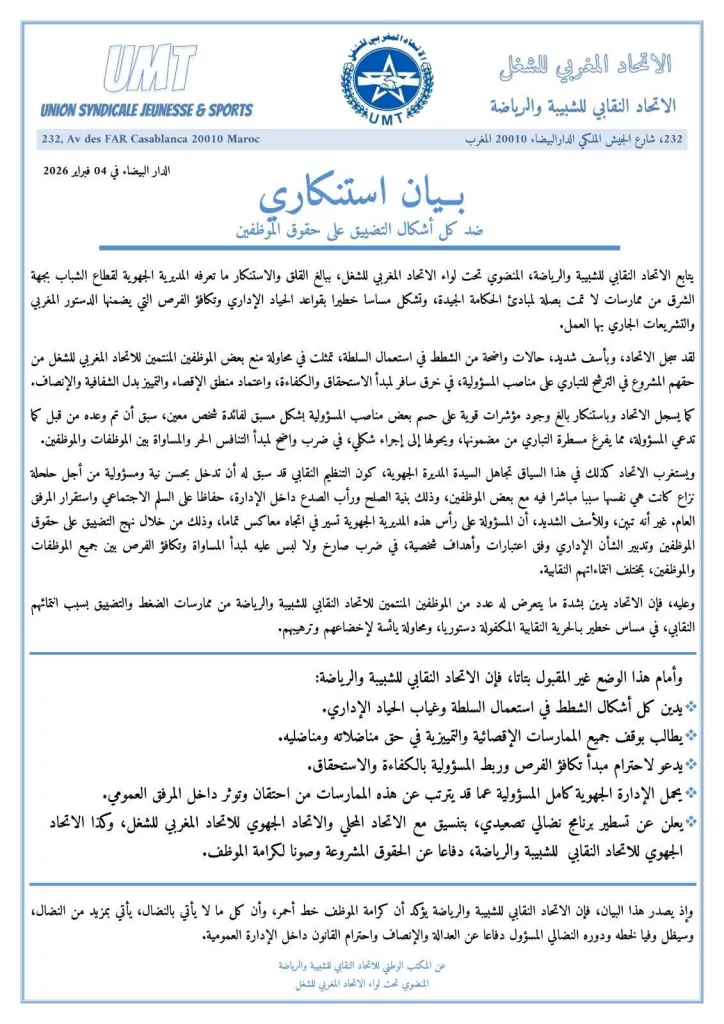 UMT
الاتحاد المغربي للشغل
الاتحاد المغربي للشغل
UMT
UNION SYNDICALE JEUNESSE & SPORTS
الاتحاد النقابي للشبيبة والرياضة
232, Av des FAR Casablanca 20010 Maroc
232، شارع الجيش الملكي الدارالبيضاء 20010 المغرب
الدار البيضاء في 04 فبراير 2026
بيان استنكاري
ضد كل أشكال التضييق على حقوق الموظفين
يتابع الاتحاد النقابي للشبيبة والرياضة، المنضوي تحت لواء الاتحاد المغربي للشغل، ببالغ القلق والاستنكار ما تعرفه المديرية الجهوية لقطاع الشباب بجهة
الشرق من ممارسات لا تمت بصلة لمبادئ الحكامة الجيدة، وتشكل مساسا خطيرا بقواعد الحياد الإداري وتكافؤ الفرص التي يضمنها الدستور المغربي
والتشريعات الجاري بها العمل.
لقد سجل الاتحاد، وبأسف شديد، حالات واضحة من الشطط في استعمال السلطة، تمثلت في محاولة منع بعض الموظفين المنتمين للاتحاد المغربي للشغل من
حقهم المشروع في الترشح للتباري على مناصب المسؤولية، في خرق سافر لمبدأ الاستحقاق والكفاءة، واعتماد منطق الإقصاء والتمييز بدل الشفافية والإنصاف.
كما يسجل الاتحاد وباستنكار بالغ وجود مؤشرات قوية على حسم بعض مناصب المسؤولية بشكل مسبق لفائدة شخص معين، سبق أن تم وعده من قبل كما
تدعي المسؤولة، مما يفرغ مسطرة التباري من مضمونها، ويحولها إلى إجراء شكلي، في ضرب واضح لمبدأ التنافس الحر والمساواة بين الموظفات والموظفين.
ويستغرب الاتحاد كذلك في هذا السياق تجاهل السيدة المديرة الجهوية، كون التنظيم النقابي قد سبق له أن تدخل بحسن نية ومسؤولية من أجل حلحلة
نزاع كانت هي نفسها سببا مباشرا فيه مع بعض الموظفين، وذلك بنية الصلح ورأب الصدع داخل الإدارة، حفاظا على السلم الاجتماعي واستقرار المرفق
العام. غير أنه تبين، وللأسف الشديد، أن المسؤولة على رأس هذه المديرية الجهوية تسير في اتجاه معاكس تماما، وذلك من خلال نهج التضييق على حقوق
الموظفين وتدبير الشأن الإداري وفق اعتبارات وأهداف شخصية، في ضرب صارخ ولا لبس عليه لمبدأ المساواة وتكافؤ الفرص بين جميع الموظفات
والموظفين، بمختلف انتماءاتهم النقابية.
وعليه، فإن الاتحاد يدين بشدة ما يتعرض له عدد من الموظفين المنتمين للاتحاد النقابي للشبيبة والرياضة من ممارسات الضغط والتضييق بسبب انتمائهم
النقابي، في مساس خطير بـالحرية النقابية المكفولة دستوريا، ومحاولة يائسة لإخضاعهم وترهيبهم.
وأمام هذا الوضع غير المقبول بتاتا، فإن الاتحاد النقابي للشبيبة والرياضة:
❖ يدين كل أشكال الشطط في استعمال السلطة وغياب الحياد الإداري.
❖ يطالب بوقف جميع الممارسات الإقصائية والتمييزية في حق مناضلاته ومناضليه.
❖ يدعو لاحترام مبدأ تكافؤ الفرص وربط المسؤولية بالكفاءة والاستحقاق.
❖ يحمل الإدارة الجهوية كامل المسؤولية عما قد يترتب عن هذه الممارسات من احتقان وتوتر داخل المرفق العمومي.
❖ يعلن عن تسطير برنامج نضالي تصعيدي، بتنسيق مع الاتحاد المحلي والاتحاد الجهوي للاتحاد المغربي للشغل، وكذا الاتحاد
الجهوي للاتحاد النقابي للشبيبة والرياضة، دفاعا عن الحقوق المشروعة وصونا لكرامة الموظف.
وإذ يصدر هذا البيان، فإن الاتحاد النقابي للشبيبة والرياضة يؤكد أن كرامة الموظف خط أحمر، وأن كل ما لا يأتي بالنضال، يأتي بمزيد من النضال،
وسيظل وفيا لخطه ودوره النضالي المسؤول دفاعا عن العدالة والإنصاف واحترام القانون داخل الإدارة العمومية.
عن المكتب الوطني للاتحاد النقابي للشبيبة والرياضة
المنضوي تحت لواء الاتحاد المغربي للشغل